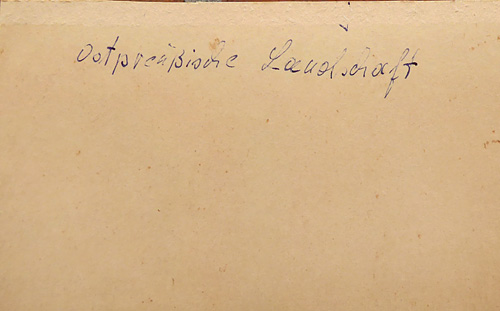 Ostpreußische Landschaft